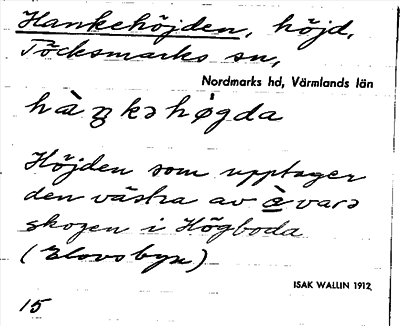 Hankehöjden, höjd,
Töcksmarks sn,
Nordmarks hd, Värmlands län
hàŋkəhøgda
Höjden som upptager
den västra av
skogen i Högboda
(Elovsbyn)
ISAK WALLIN 1912
15